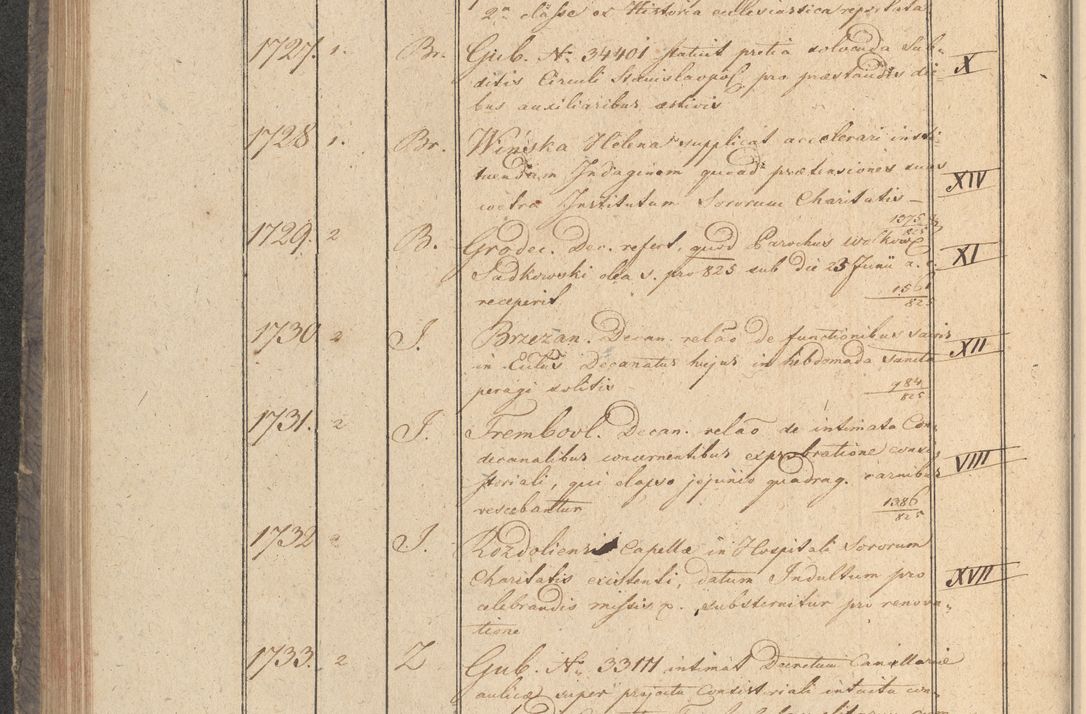 2da classe ex Historia ecclesiastica reportata
1727. 1. Br. Gub. No 34401 statuit pretia solvenda Sub-
ditis Circuli Stanislavopol. pro praestandis die-
bus auxiliaribus aestivis X
1728 1. Br. Wińska Helena supplicat accelerari insti-
tuendam Indaginem quoad praetensiones suas
contra Institutum Sororum Charitatis — XIV
1729. 2 B. Grodec. Dec. refert, quod Parochus
Sadkowski olea s. pro 825 sub die 23 Junii a. c.
receperit 1375/825 XI
156/825
1730 2 J. Brzezan. Decan. relāo de functionibus sacris
in Decanatus hujus in hebdomada sancta
peragi solitis XII
984/825
1731. 2 J. Trembovl. Decan. relāo de intimata Con-
decanalibus concernentibus exprobratione consi-
storiali, qui elapso jejunio quadrag. carnibus
vescebantur VIIII
1386/825
1732 2 J. Rozdoliensi Capellae in Hospitali Sororum
Charitatis existenti, datum Indultum pro
celebrandis missis p. substernitur pro renova-
tione XVII
1733. 2 Z Gub. No 33111 intimat Decretum Cancellariae
aulicae super projectu Consistoriali intuitu con-